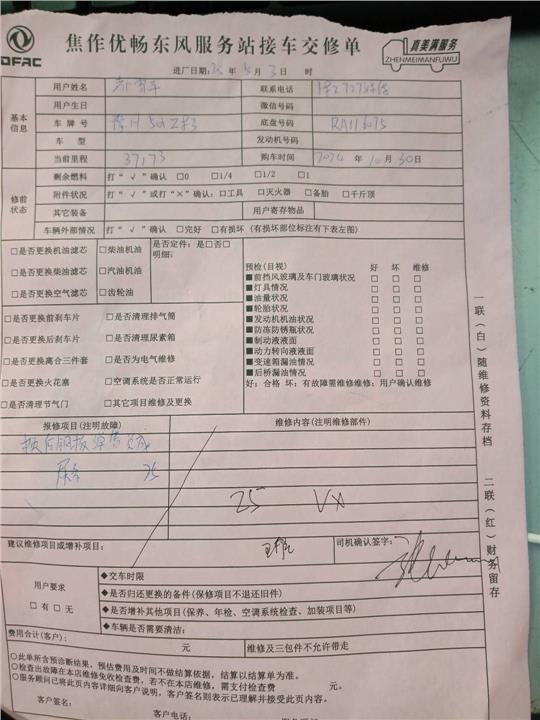 DFAC
焦作优畅东风服务站接车交修单
真美满服务
ZHENMEIMANFUWU
进厂日期: 年 5 月 3 日 时
基本信息
用户姓名 联系电话
用户生日 微信号码
车牌号 底盘号码 RA116075
车型 发动机号码
当前里程 37173 购车时间 2024 年 10 月 30 日
修前状态
剩余燃料 打“ √ ”确认 □0 □1/4 □1/2 □1
附件状况 打“ √ ”或打“×”确认：□工具 □灭火器 □备胎 □千斤顶
其它装备 用户寄存物品
车辆外部情况 打“ √ ”确认 □完好 □有损坏 (有损坏部位标注有下表左图)
□是否更换机油滤芯 □柴油机油 是否定件：是□否□
明细：
□是否更换柴油滤芯 □汽油机油
□是否更换空气滤芯 □齿轮油
预检(目视) 好 坏 维修
■前挡风玻璃及车门玻璃状况 □ □ □
■灯具情况 □ □ □
■油量状况 □ □ □
■轮胎状况 □ □ □
■发动机机油状况 □ □ □
■防冻防锈瓶状况 □ □ □
■制动液液面 □ □ □
■动力转向液液面 □ □ □
■变速箱漏油情况 □ □ □
■后桥漏油情况 □ □ □
好：合格 坏：有故障需维修维修：用户确认维修
□是否更换前刹车片 □是否清理排气筒
□是否更换后刹车片 □是否清理尿素箱
□是否更换离合三件套 □是否为电气维修
□是否更换火花塞 □空调系统是否正常运行
□是否清理节气门 □其它项目维修及更换
一联(白)随维修资料存档
二联(红)财务留存
报修项目(注明故障) 维修内容(注明维修部件)
换后钢板弹簧总成
25
25 VX
建议维修项目或增补项目： 司机确认签字：
用户要求
□有 □无
◆交车时限
◆是否归还更换的备件 (保修项目不退还旧件)
◆是否增补其他项目(保养、年检、空调系统检查、加装项目等)
◆车辆是否需要清洁：
费用合计(客户)： 元 维修及三包件不允许带走
○此单所含预诊断结果，预估费用及时间不做结算依据，结算以结算单为准。
○检查出故障在本店维修免收检查费，若不在本店维修，需支付检查费 元。
○服务顾问已将此页内容详细向客户说明，客户签名则表示已理解并接受此页内容。
客户签名： 客户电话：